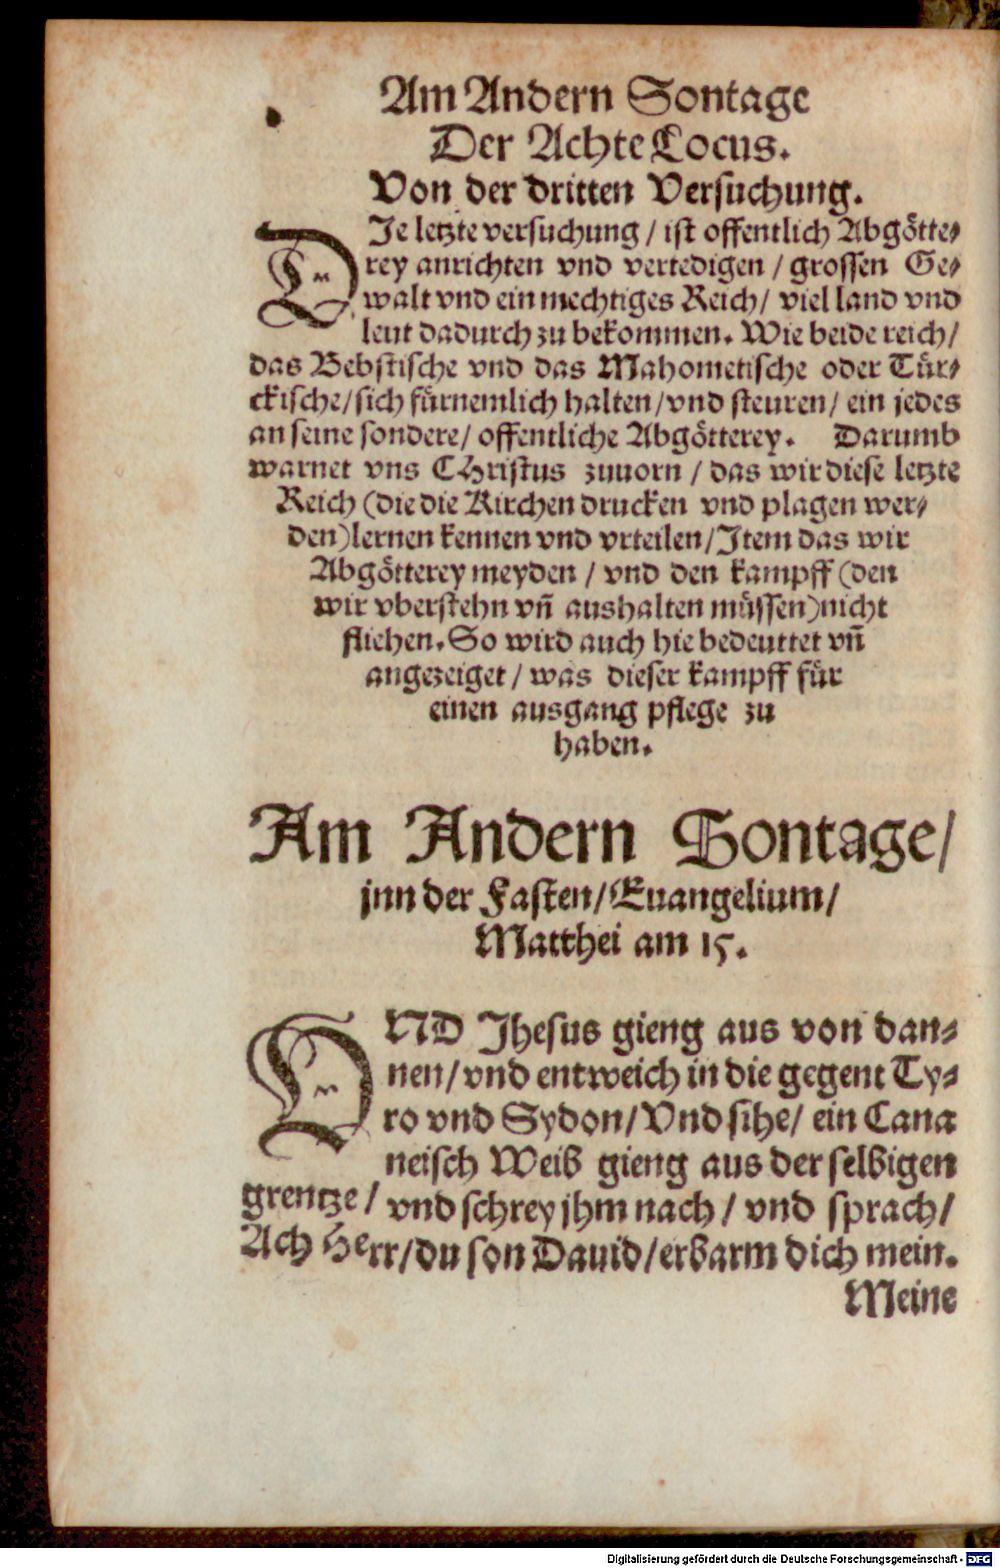 Am Andern Sontage
Der Achte Locus.
Von der dritten Versuchung.
DJe letzte versuchung / ist offentlich Abgötte⸗
rey anrichten vnd vertedigen / grossen Ge⸗
walt vnd ein mechtiges Reich / viel land vnd
leut dadurch zu bekommen. Wie beide reich /
das Bebstische vnd das Mahometische oder Tür⸗
ckische / sich fürnemlich halten / vnd steuren / ein jedes
an seine sondere / offentliche Abgötterey. Darumb
warnet vns CHristus zuuorn / das wir diese letzte
Reich (die die Kirchen drucken vnd plagen wer⸗
den) lernen kennen vnd vrteilen / Jtem das wir
Abgötterey meyden / vnd den kampff (den
wir vberstehn vñ aushalten müssen) nicht
fliehen. So wird auch hie bedeuttet vñ
angezeiget / was dieser kampff für
einen ausgang pflege zu
haben.
Am Andern Sontage /
jnn der Fasten / Euangelium /
Matthei am 15.
VND Jhesus gieng aus von dan⸗
nen / vnd entweich in die gegent Ty⸗
ro vnd Sydon / Vnd sihe / ein Cana
neisch Weib gieng aus der selbigen
grentze / vnd schrey jhm nach / vnd sprach /
Ach Herr / du son Dauid / erbarm dich mein.
Meine
Digitalisierung gefördert durch die Deutsche Forschungsgemeinschaft - DFG